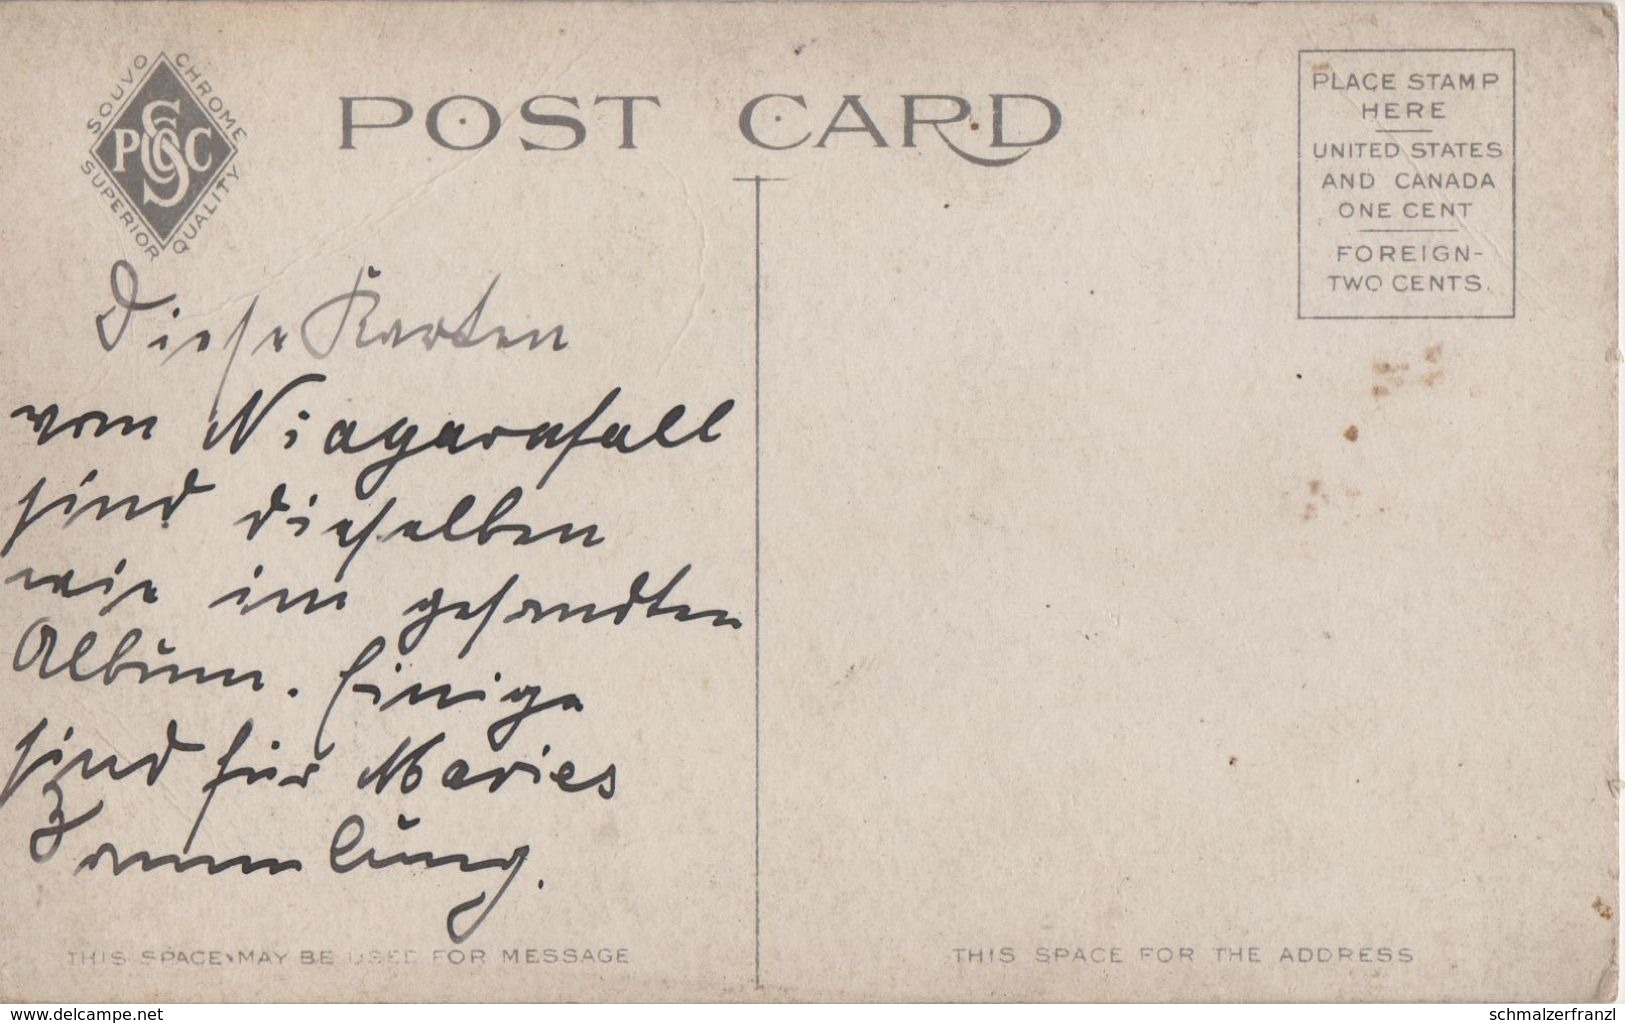 SOUVO CHROME
P S C C
SUPERIOR QUALITY
POST CARD
PLACE STAMP
HERE
UNITED STATES
AND CANADA
ONE CENT
FOREIGN-
TWO CENTS.
Diese Karten
vom Niagarafall
sind dieselben
wie im gesandten
Album. Einige
sind für Maries
Sammlung.
THIS SPACE MAY BE USED FOR MESSAGE
THIS SPACE FOR THE ADDRESS
www.delcampe.net
schmalzerfranzl